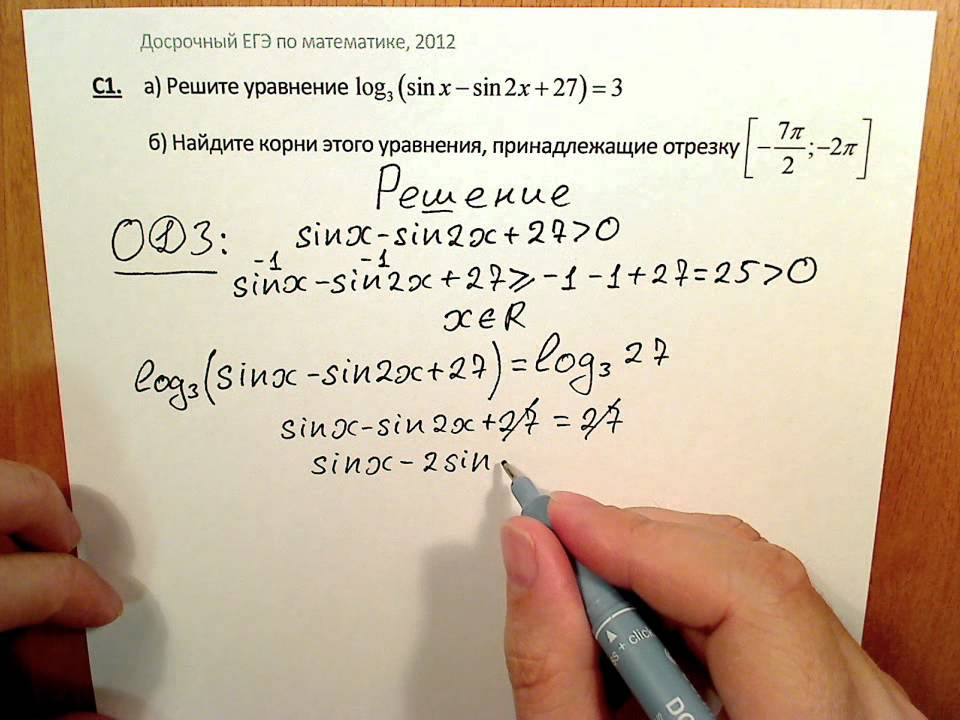 Досрочный ЕГЭ по математике, 2012
С1. а) Решите уравнение log₃(sin x − sin 2x + 27) = 3
б) Найдите корни этого уравнения, принадлежащие отрезку [−7π/2; −2π]
Решение
ОДЗ: sinx − sin2x + 27 > 0
-1 -1
sinx − sin2x + 27 ⩾ −1 − 1 + 27 = 25 > 0
x ∈ R
log₃(sinx − sin2x + 27) = log₃ 27
sinx − sin2x + 27 = 27
sinx − 2sin
+ click
DO